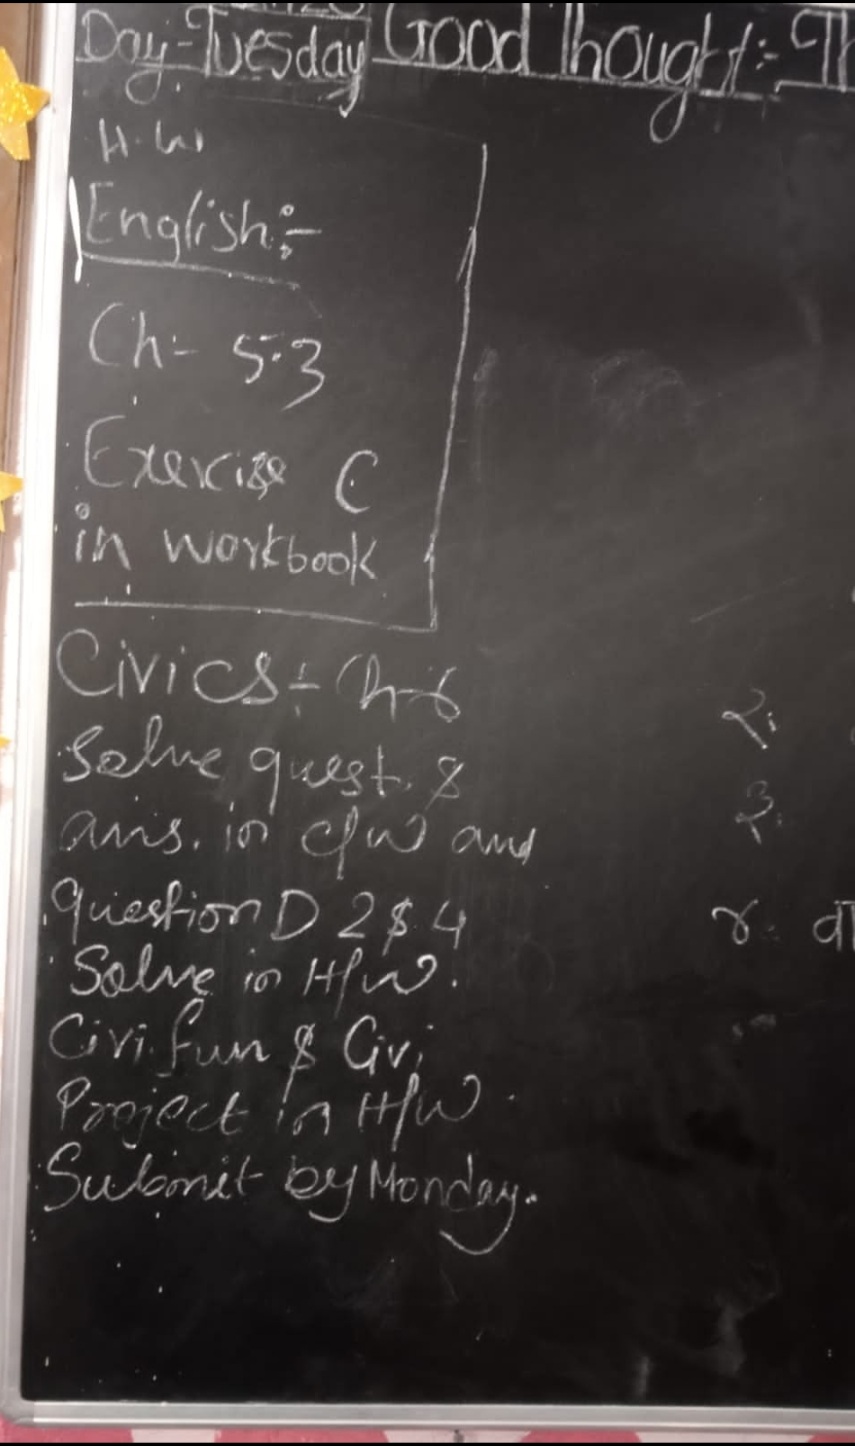 Day:-Tuesday Good Thought:- Th
H.W
English:-
Ch:- 5.3
Exercise C
in workbook
Civics:- Ch-6
Solve quest. &
ans. in c/w and
question D 2 & 4
Solve in H/w.
Civi. fun & Civi
Project in H/W.
Submit by Monday.
२.
३.
४.